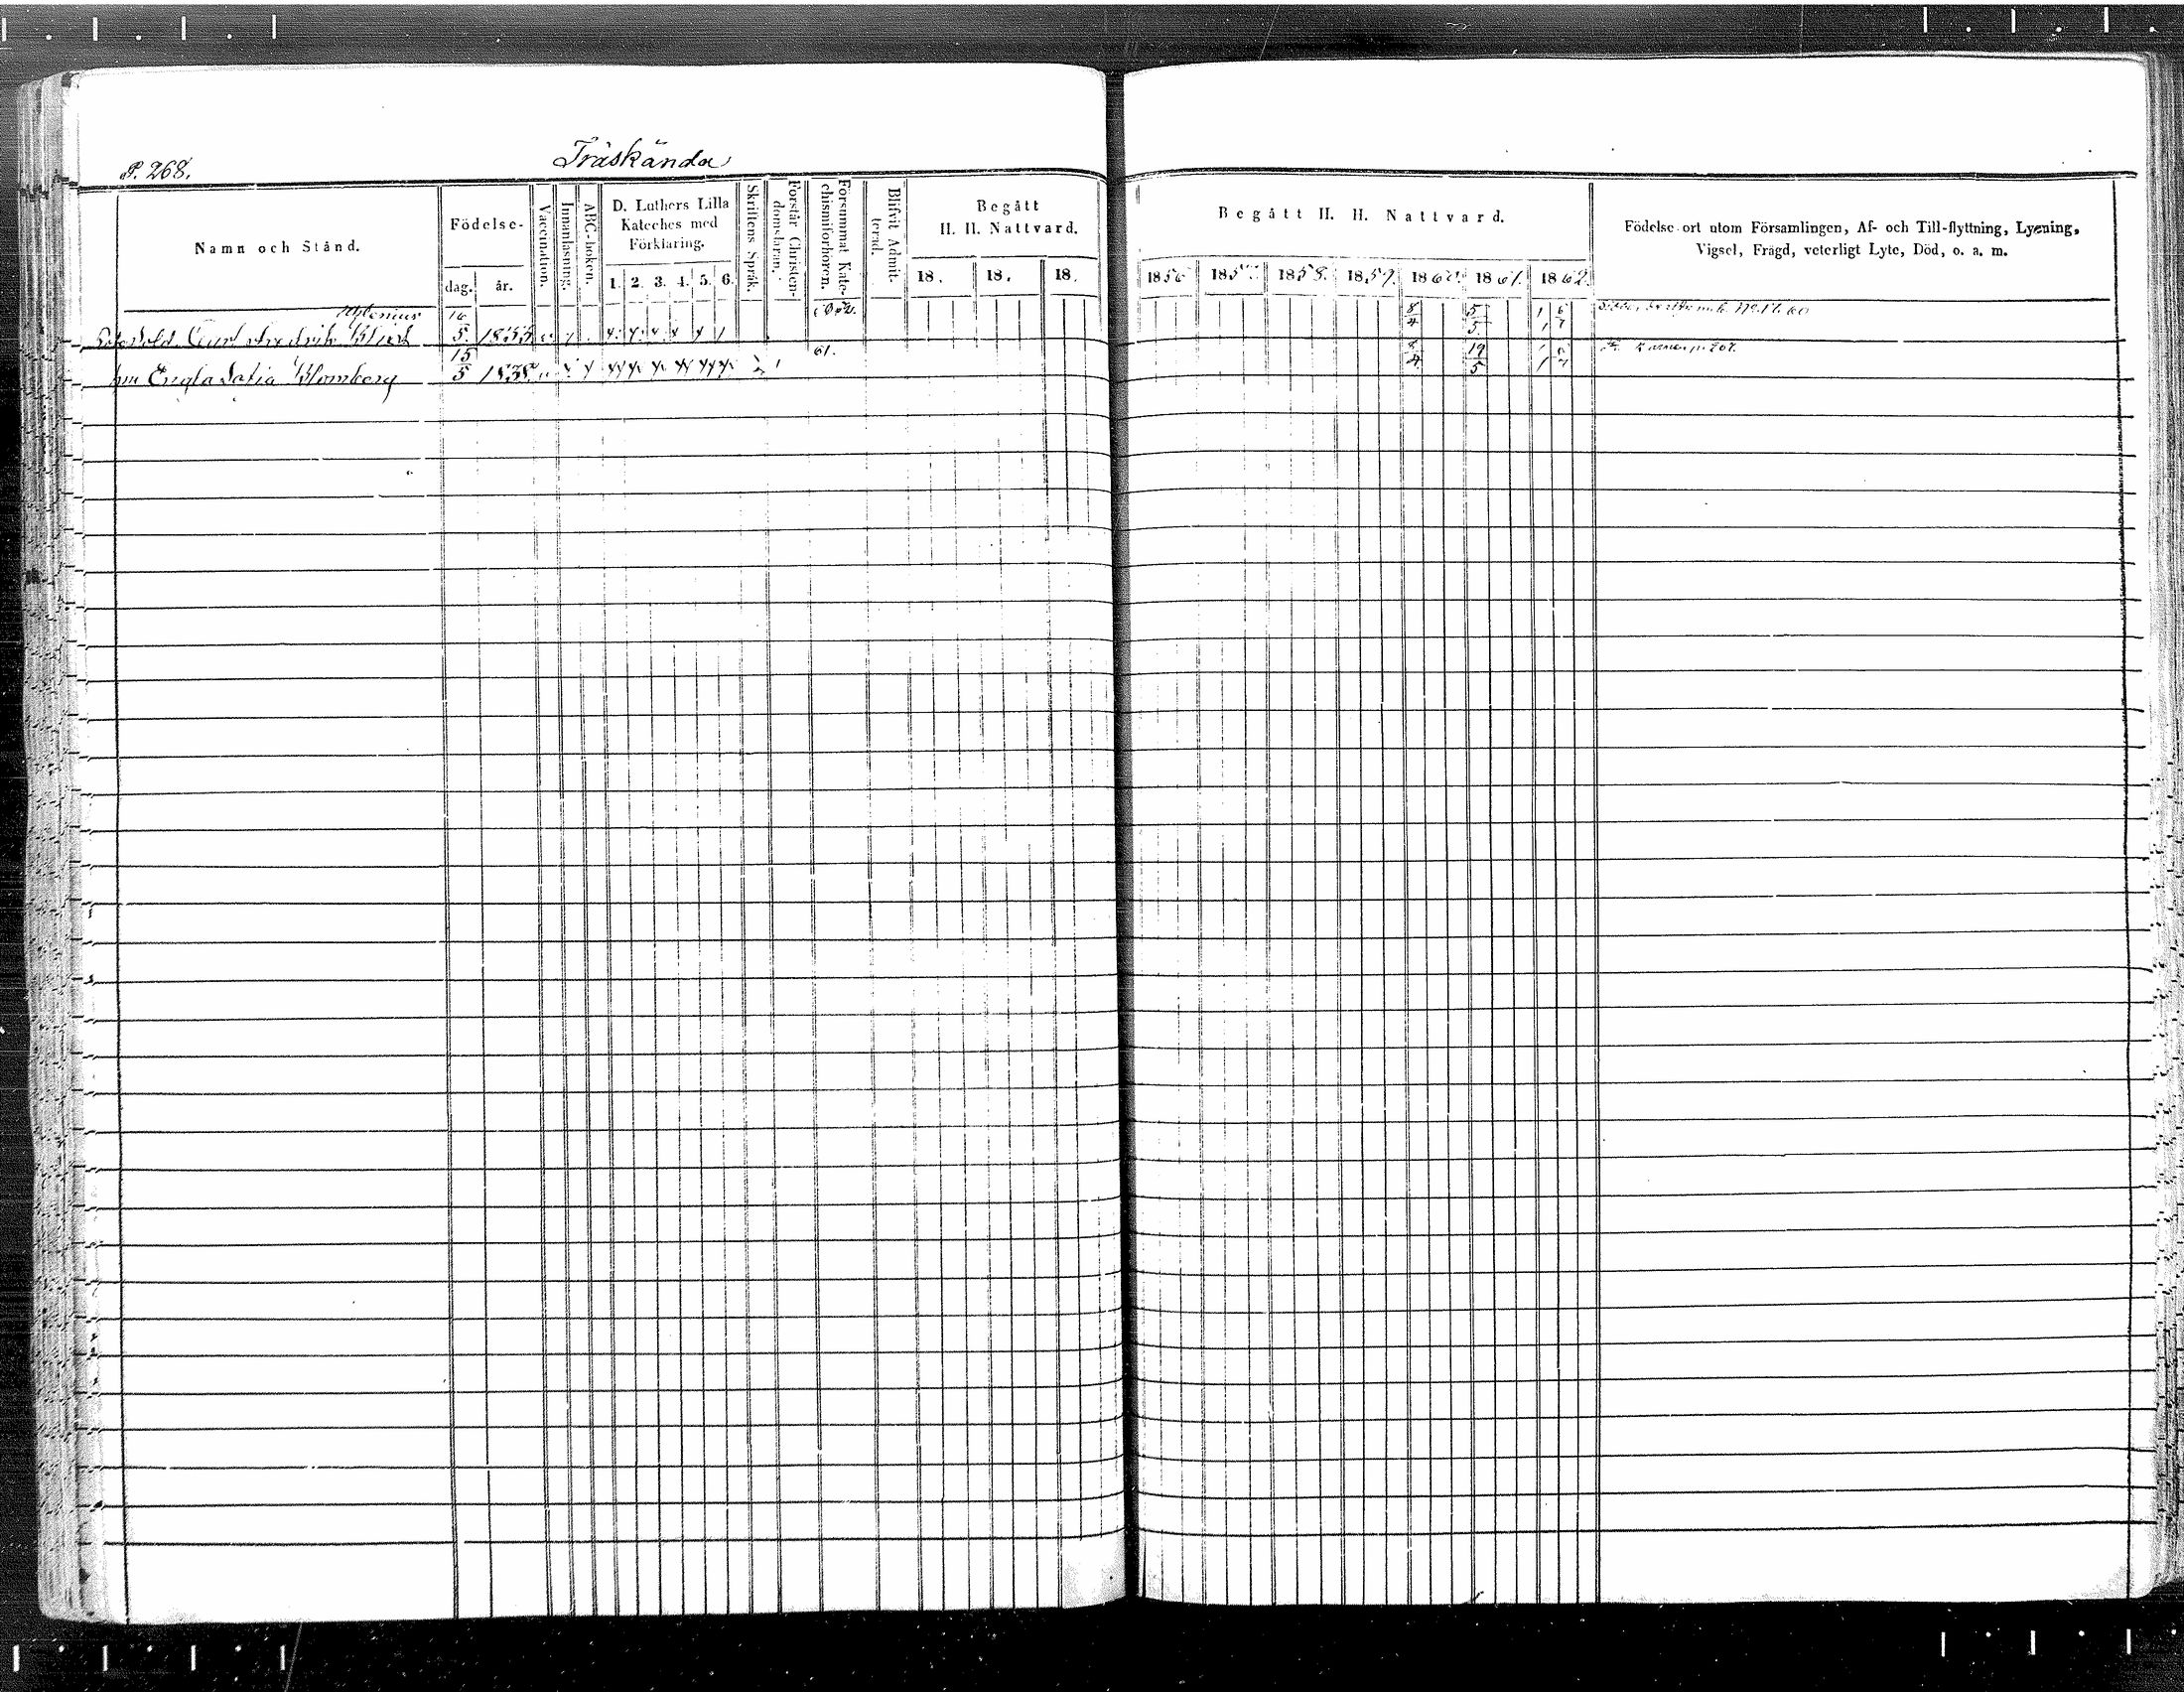 P. 268.
Träskända
Namn och Stånd.
Födelse-
dag.
år.
Vaccination.
Innanläsning.
ABC-boken.
D. Luthers Lilla
Kateches med
Förklaring.
1. 2. 3. 4. 5. 6.
Skriftens Språk.
Förstår Christen-
domsläran.
Försummat Kate-
chismiförhören.
Blifvit Admit-
terad.
Begått
H. H. Nattvard.
18. 18. 18.
Begått H. H. Nattvard.
1856 1857. 1858. 1859. 1860. 1861. 1862.
Födelse-ort utom Församlingen, Af- och Till-flyttning, Lysning,
Vigsel, Frägd, veterligt Lyte, Död, o. a. m.
Carl Fredrik
16/5. 1833
8/4 5/5
hu Engla Sofia Blomberg
15/5 1838
61.
8/4 19/5
p. 207.